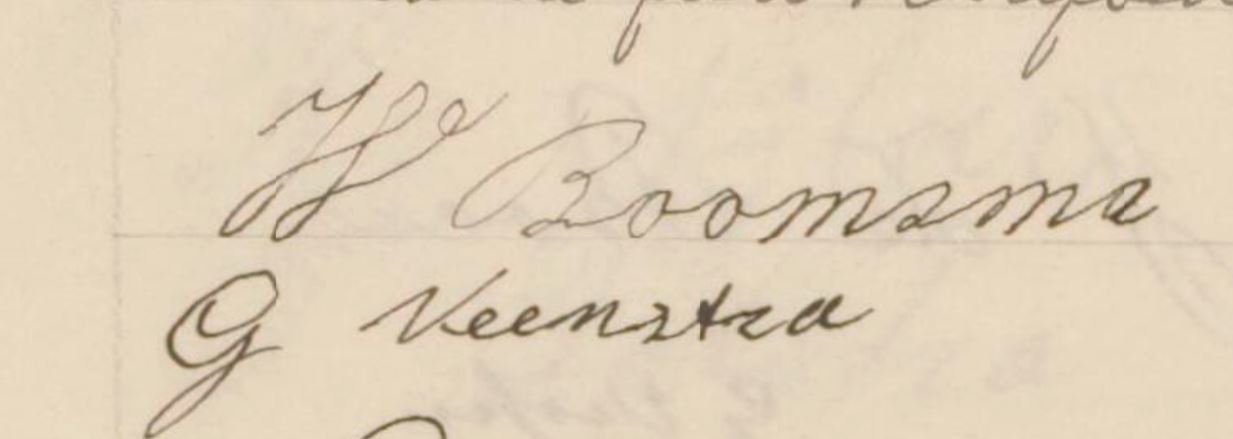 W Boomsma
G Veenstra